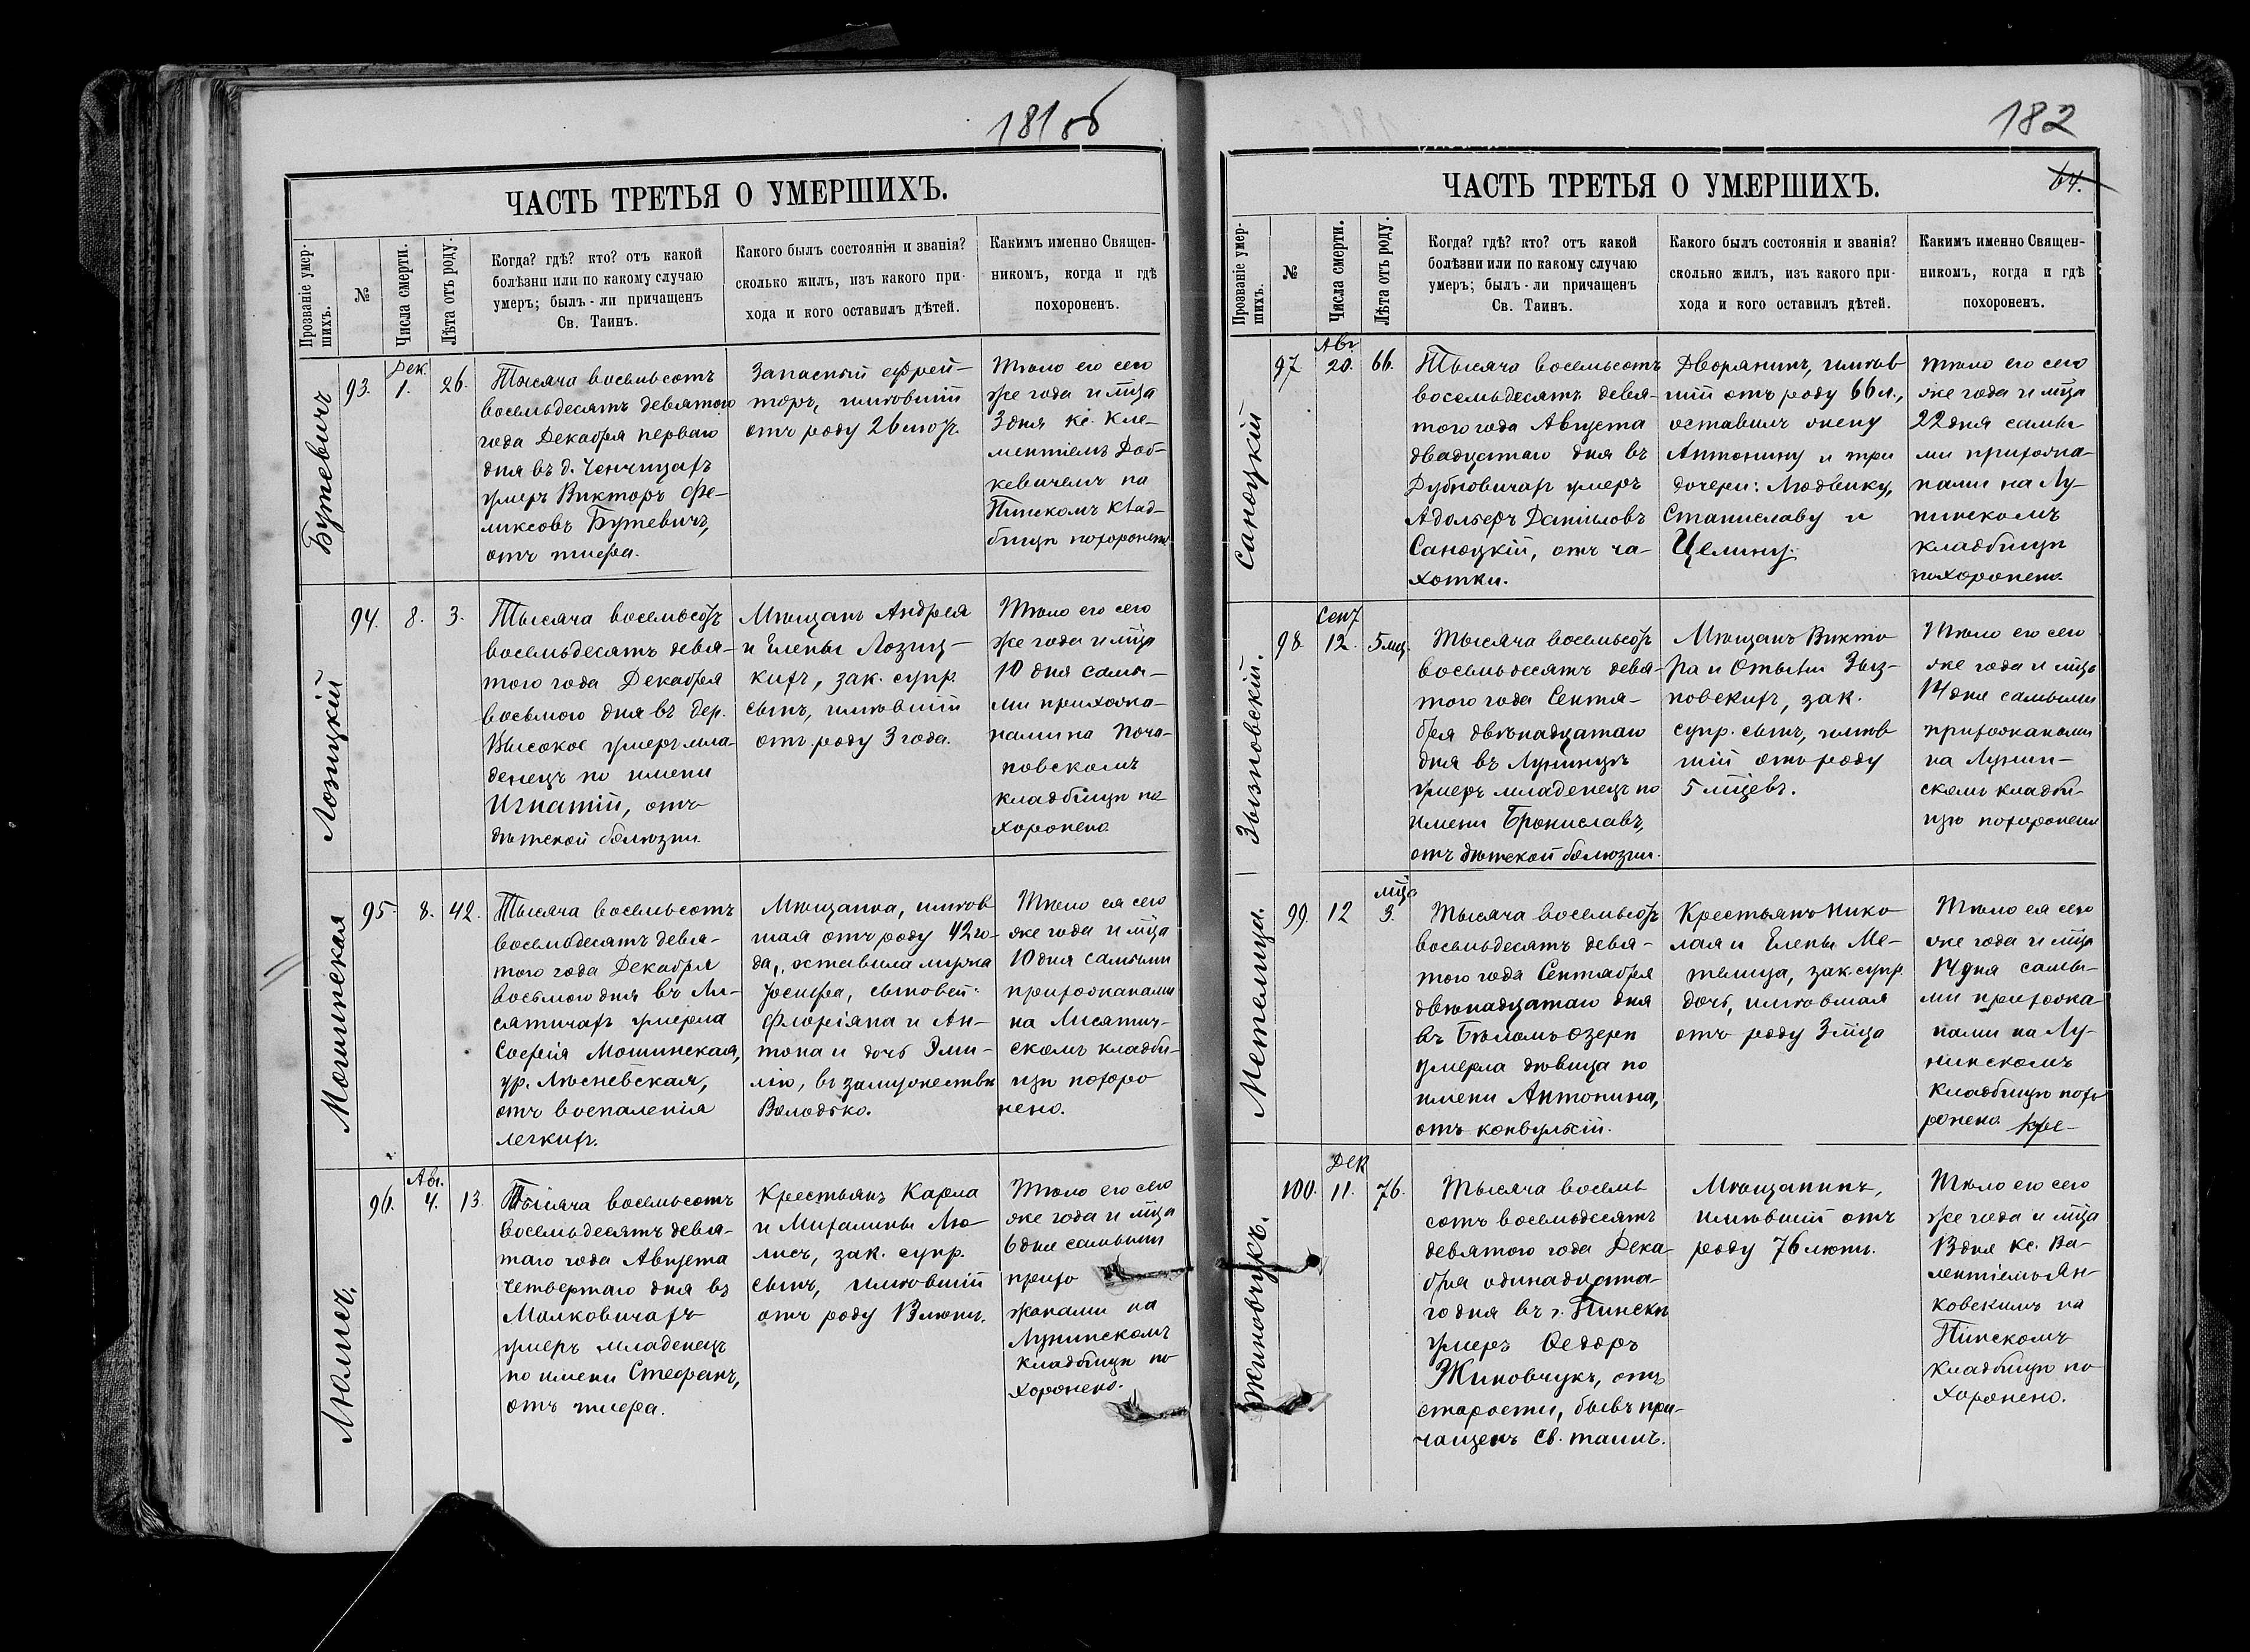 181 об
ЧАСТЬ ТРЕТЬЯ О УМЕРШИХЪ.
Прозваніе умер-
шихъ.
№
Числа смерти.
Лѣта отъ роду.
Когда? гдѣ? кто? отъ какой
болѣзни или по какому случаю
умеръ; былъ-ли причащенъ
Св. Таинъ.
Какого былъ состоянія и званія?
сколько жилъ, изъ какого при-
хода и кого оставилъ дѣтей.
Какимъ именно Священ-
никомъ, когда и гдѣ
похороненъ.
Бутевичъ
93.
Дек.
1.
26.
Тысяча восемьсотъ
восемьдесятъ девятого
года Декабря перваго
дня въ д. Ченчицахъ
умеръ Викторъ Фе-
ликсовъ Бутевичъ,
отъ тифа.
Запасный ефрей-
торъ, имѣвшій
отъ роду 26 лѣтъ.
Тѣло его сего
же года и мца
3 дня кс. Кле-
ментіемъ Доб-
кевичемъ на
Пинскомъ клад-
бищѣ похоронено
Лозицкій
94.
8.
3.
Тысяча восемьсотъ
восемьдесятъ девя-
того года Декабря
восьмого дня въ дер.
Высокое умеръ мла-
денецъ по имени
Игнатій, отъ
дѣтской болѣзни.
Мѣщанъ Андрея
и Елены Лозиц-
кихъ, зак. супр.
сынъ, имѣвшій
отъ роду 3 года.
Тѣло его сего
же года и мца
10 дня самы-
ми прихожа-
нами на Поча-
повскомъ
кладбищѣ по
хоронено
Мошинская
95.
8.
42.
Тысяча восемьсотъ
восемьдесятъ девя-
того года Декабря
восьмого дня въ Ли-
сятичахъ умерла
Софія Мошинская,
ур. Лѣсневская,
отъ воспаленія
легкихъ.
Мѣщанка, имѣв
шая отъ роду 42 го-
да, оставила мужа
Іосифа, сыновей:
Флоріяна и Ан-
тона и дочь Эми-
лію, въ замужествѣ
Володько.
Тѣло ея сего
же года и мца
10 дня самыми
прихожанами
на Лисятич-
скомъ кладби-
щѣ похоро
нено.
Люлисъ.
96.
Авг.
4.
13.
Тысяча восемьсотъ
восемьдесятъ девя-
таго года Августа
четвертаго дня въ
Малковичахъ
умеръ младенецъ
по имени Стефанъ,
отъ тифа.
Крестьянъ Карла
и Михалины Лю-
лисъ, зак. супр.
сынъ, имѣвшій
отъ роду 13 лѣтъ.
Тѣло его сего
же года и мца
6 дня самыми
прихо
жанами на
Лунинскомъ
кладбищѣ по
хоронено.
182
64.
ЧАСТЬ ТРЕТЬЯ О УМЕРШИХЪ.
Прозваніе умер-
шихъ.
№
Числа смерти.
Лѣта отъ роду.
Когда? гдѣ? кто? отъ какой
болѣзни или по какому случаю
умеръ; былъ-ли причащенъ
Св. Таинъ.
Какого былъ состоянія и званія?
сколько жилъ, изъ какого при-
хода и кого оставилъ дѣтей.
Какимъ именно Священ-
никомъ, когда и гдѣ
похороненъ.
Саноцкій
97.
Авг
20.
66.
Тысяча восемьсотъ
восемьдесятъ девя-
того года Августа
двадцатаго дня въ
Дубновичахъ умеръ
Адольфъ Даніиловъ
Саноцкій, отъ ча-
хотки.
Дворянинъ, имѣв
шій отъ роду 66 л.,
оставилъ жену
Антонину и три
дочери: Людвику,
Станиславу и
Целину.
Тѣло его сего
же года и мца
22 дня самы
ми прихожа-
нами на Лу-
нинскомъ
кладбищѣ
похоронено.
Зызновскій.
98.
Сент
12.
5 мц.
Тысяча восемьсотъ
восемьдесятъ девя-
того года Сентя-
бря двѣнадцатаго
дня въ Лунинцѣ
умеръ младенецъ по
имени Брониславъ,
отъ дѣтской болѣзни.
Мѣщанъ Викто
ра и Отыліи Зыз-
новскихъ, зак.
супр. сынъ, имѣв
шій отъ роду
5 мцевъ.
Тѣло его сего
же года и мца
14 дня самыми
прихожанами
на Лунин-
скомъ кладби-
щѣ похоронено
Метелица.
99.
12
мца
3.
Тысяча восемьсотъ
восемьдесятъ девя-
того года Сентября
двѣнадцатаго дня
въ Бѣломъ озерѣ
умерла дѣвица по
имени Антонина,
отъ конвульсій.
Крестьянъ Нико
лая и Елены Ме-
телица, зак. супр.
дочь, имѣвшая
отъ роду 3 мца
Тѣло ея сего
же года и мца
14 дня самы-
ми прихожа-
нами на Лу-
нинскомъ
кладбищѣ похо
ронено.
Жиновчукъ.
100.
Дек
11.
76.
Тысяча восемь
сотъ восемьдесятъ
девятого года Дека-
бря одинадцата-
го дня въ г. Пинскѣ
умеръ Ѳедоръ
Жиновчукъ, отъ
старости, бывъ при-
чащенъ Св. таинъ.
Мѣщанинъ,
имѣвшій отъ
роду 76 лѣтъ.
Тѣло его сего
же года и мца
13 дня кс. Ва-
лентіемъ Ян-
ковскимъ на
Пинскомъ
кладбищѣ по
хоронено.